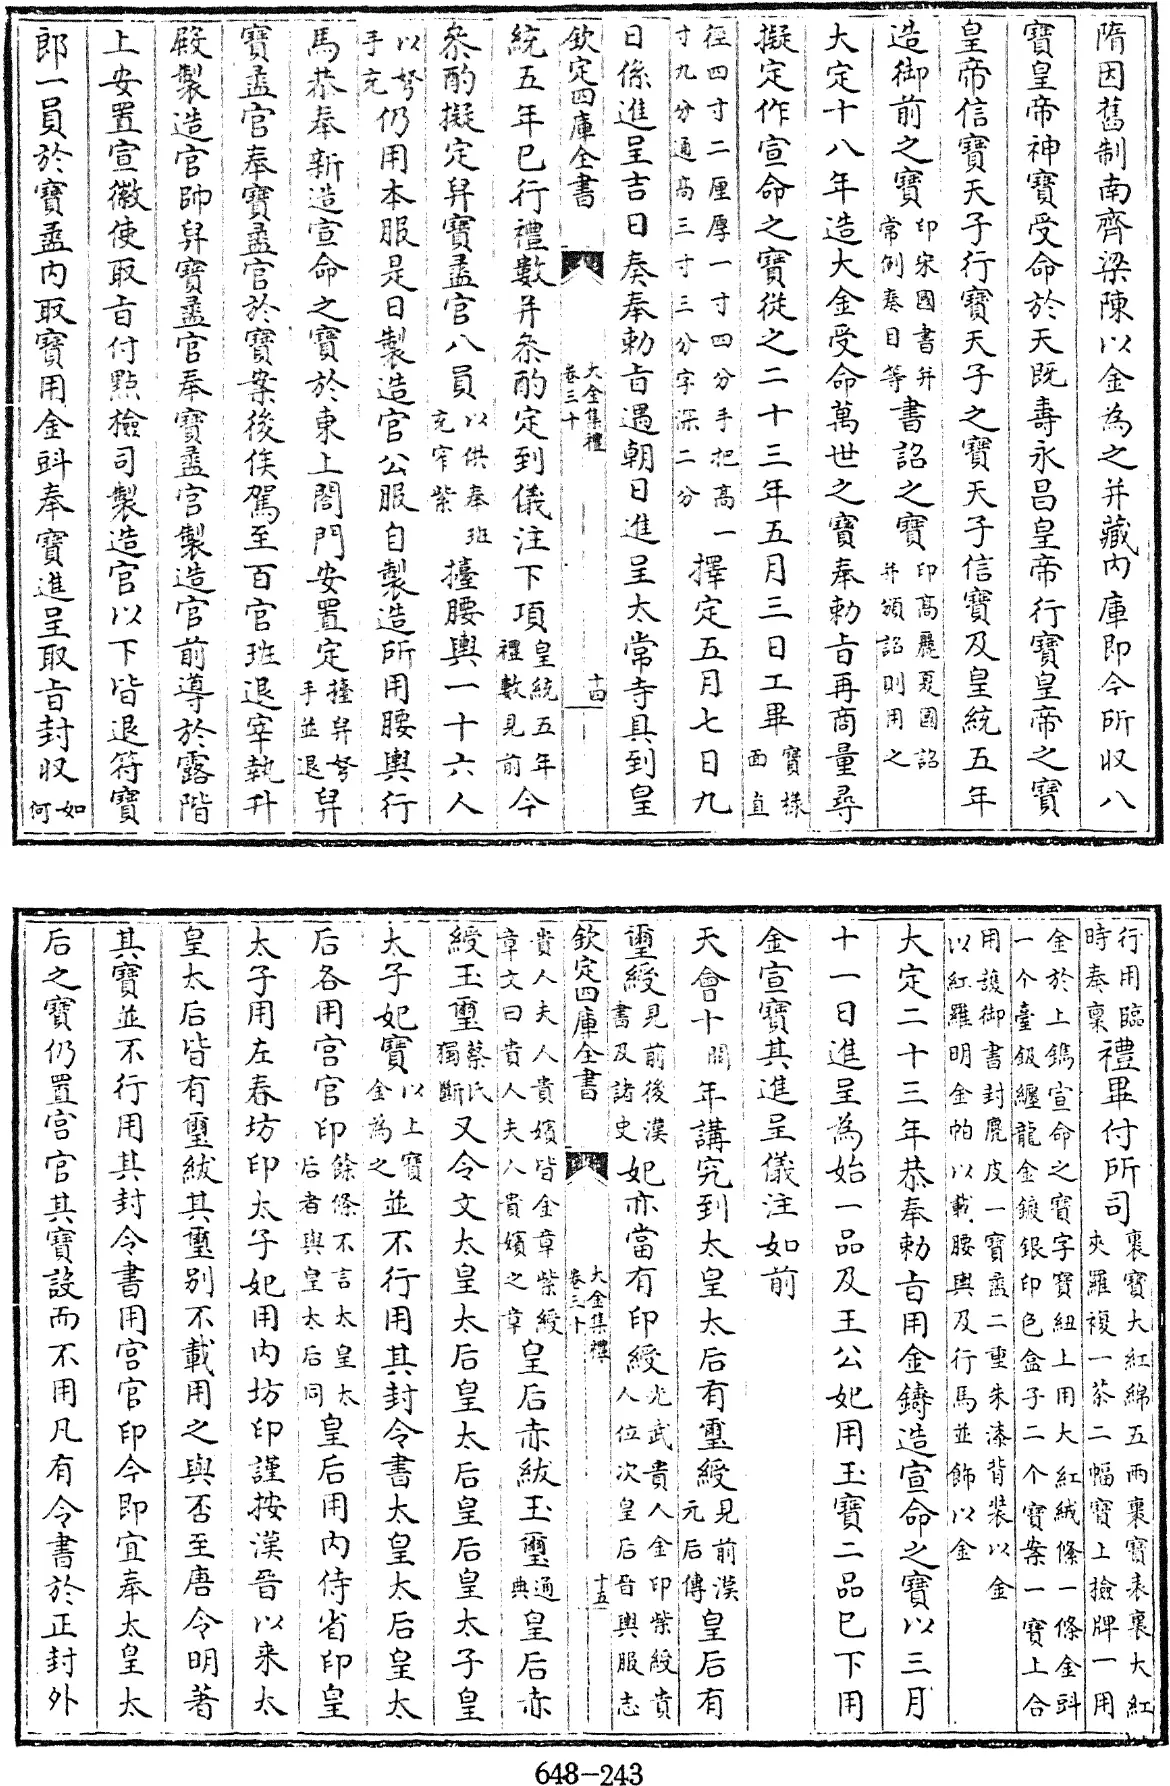 隋因舊制南齊梁陳以金為之并藏内庫即今所収八
寶皇帝神寶受命於天既壽永昌皇帝行寶皇帝之寶
皇帝信寶天子行寶天子之寶天子信寶及皇統五年
造御前之寶印宋國書并常例奏目等書詔之寶印髙麗夏國詔并頒詔則用之
大定十八年造大金受命萬世之寶奉勅㫖再商量尋
擬定作宣命之寶從之二十三年五月三日工畢寶樣面直
徑四寸二厘厚一寸四分手把髙一寸九分通髙三寸三分字深二分擇定五月七日九
日係進呈吉日奏奉勅㫖遇朝日進呈太常寺具到皇
欽定四庫全書 大金集禮卷三十 十四
統五年已行禮數并叅酌定到儀注下項皇統五年禮數見前今
叅酌擬定舁寶盝官八員以供奉班充窄紫擡腰輿一十六人
以弩手充仍用本服是日製造官公服自製造所用腰輿行
馬恭奉新造宣命之寶於東上閤門安置定擡舁弩手並退舁
寶盝官奉寶盝官於寶案後俟駕至百官班退宰執升
殿製造官帥舁寶盝官奉寶盝官製造官前導於露階
上安置宣徽使取㫖付點檢司製造官以下皆退符寶
郎一員於寶盝内取寶用金㪷奉寶進呈取㫖封収如何
行用臨時奉稟禮畢付所司裹寶大紅綿五兩裹寶表裏大紅夾羅複一茶二幅寶上撿牌一用
金於上鐫宣命之寶字寶紐上用大紅絨絛一條金㪷一个臺鈒纏龍金鍍銀印色盒子二个寶案一寶上合
用䕶御書封麂皮一寶盝二重朱漆背裝以金以紅羅明金帕以載腰輿及行馬並飾以金
大定二十三年恭奉勅㫖用金鑄造宣命之寶以三月
十一日進呈為始一品及王公妃用玉寶二品已下用
金宣寶其進呈儀注如前
天會十閏年講究到太皇太后有璽綬見前漢元后傳皇后有
璽綬見前後漢書及諸史妃亦當有印綬光武貴人金印紫綬貴人位次皇后晉輿服志
欽定四庫全書 大金集禮卷三十 十五
貴人夫人貴嬪皆金章紫綬章文曰貴人夫人貴嬪之章皇后赤紱玉璽通典皇后赤
綬玉璽蔡氏獨斷又令文太皇太后皇太后皇后皇太子皇
太子妃寶以上寶金為之並不行用其封令書太皇太后皇太
后各用宫官印餘條不言太皇太后者與皇太后同皇后用内侍省印皇
太子用左春坊印太子妃用内坊印謹按漢晉以来太
皇太后皆有璽紱其璽別不載用之與否至唐令明著
其寶並不行用其封令書用宫官印今即宜奉太皇太
后之寶仍置宫官其寶設而不用凡有令書於正封外
648-243